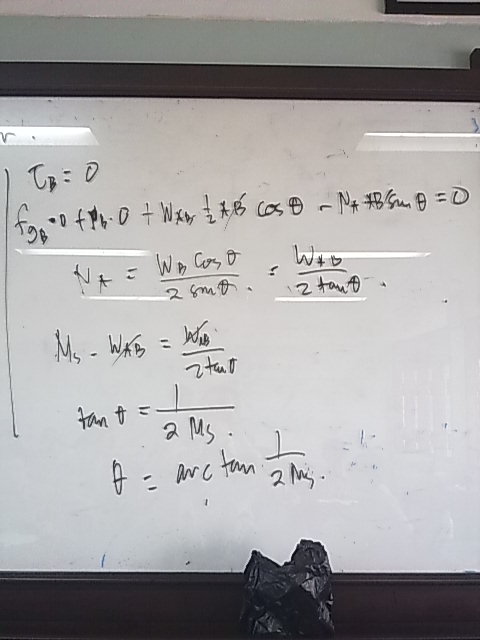 r.
τB = 0
fgB · 0 + NB · 0 + WAB ½ AB cos θ - NA AB sin θ = 0
NA = WB cos θ / 2 sin θ. = WAB / 2 tan θ.
Ms - WAB = WAB / 2 tan θ
tan θ = 1 / 2 Ms.
θ = arc tan 1 / 2 Ms.